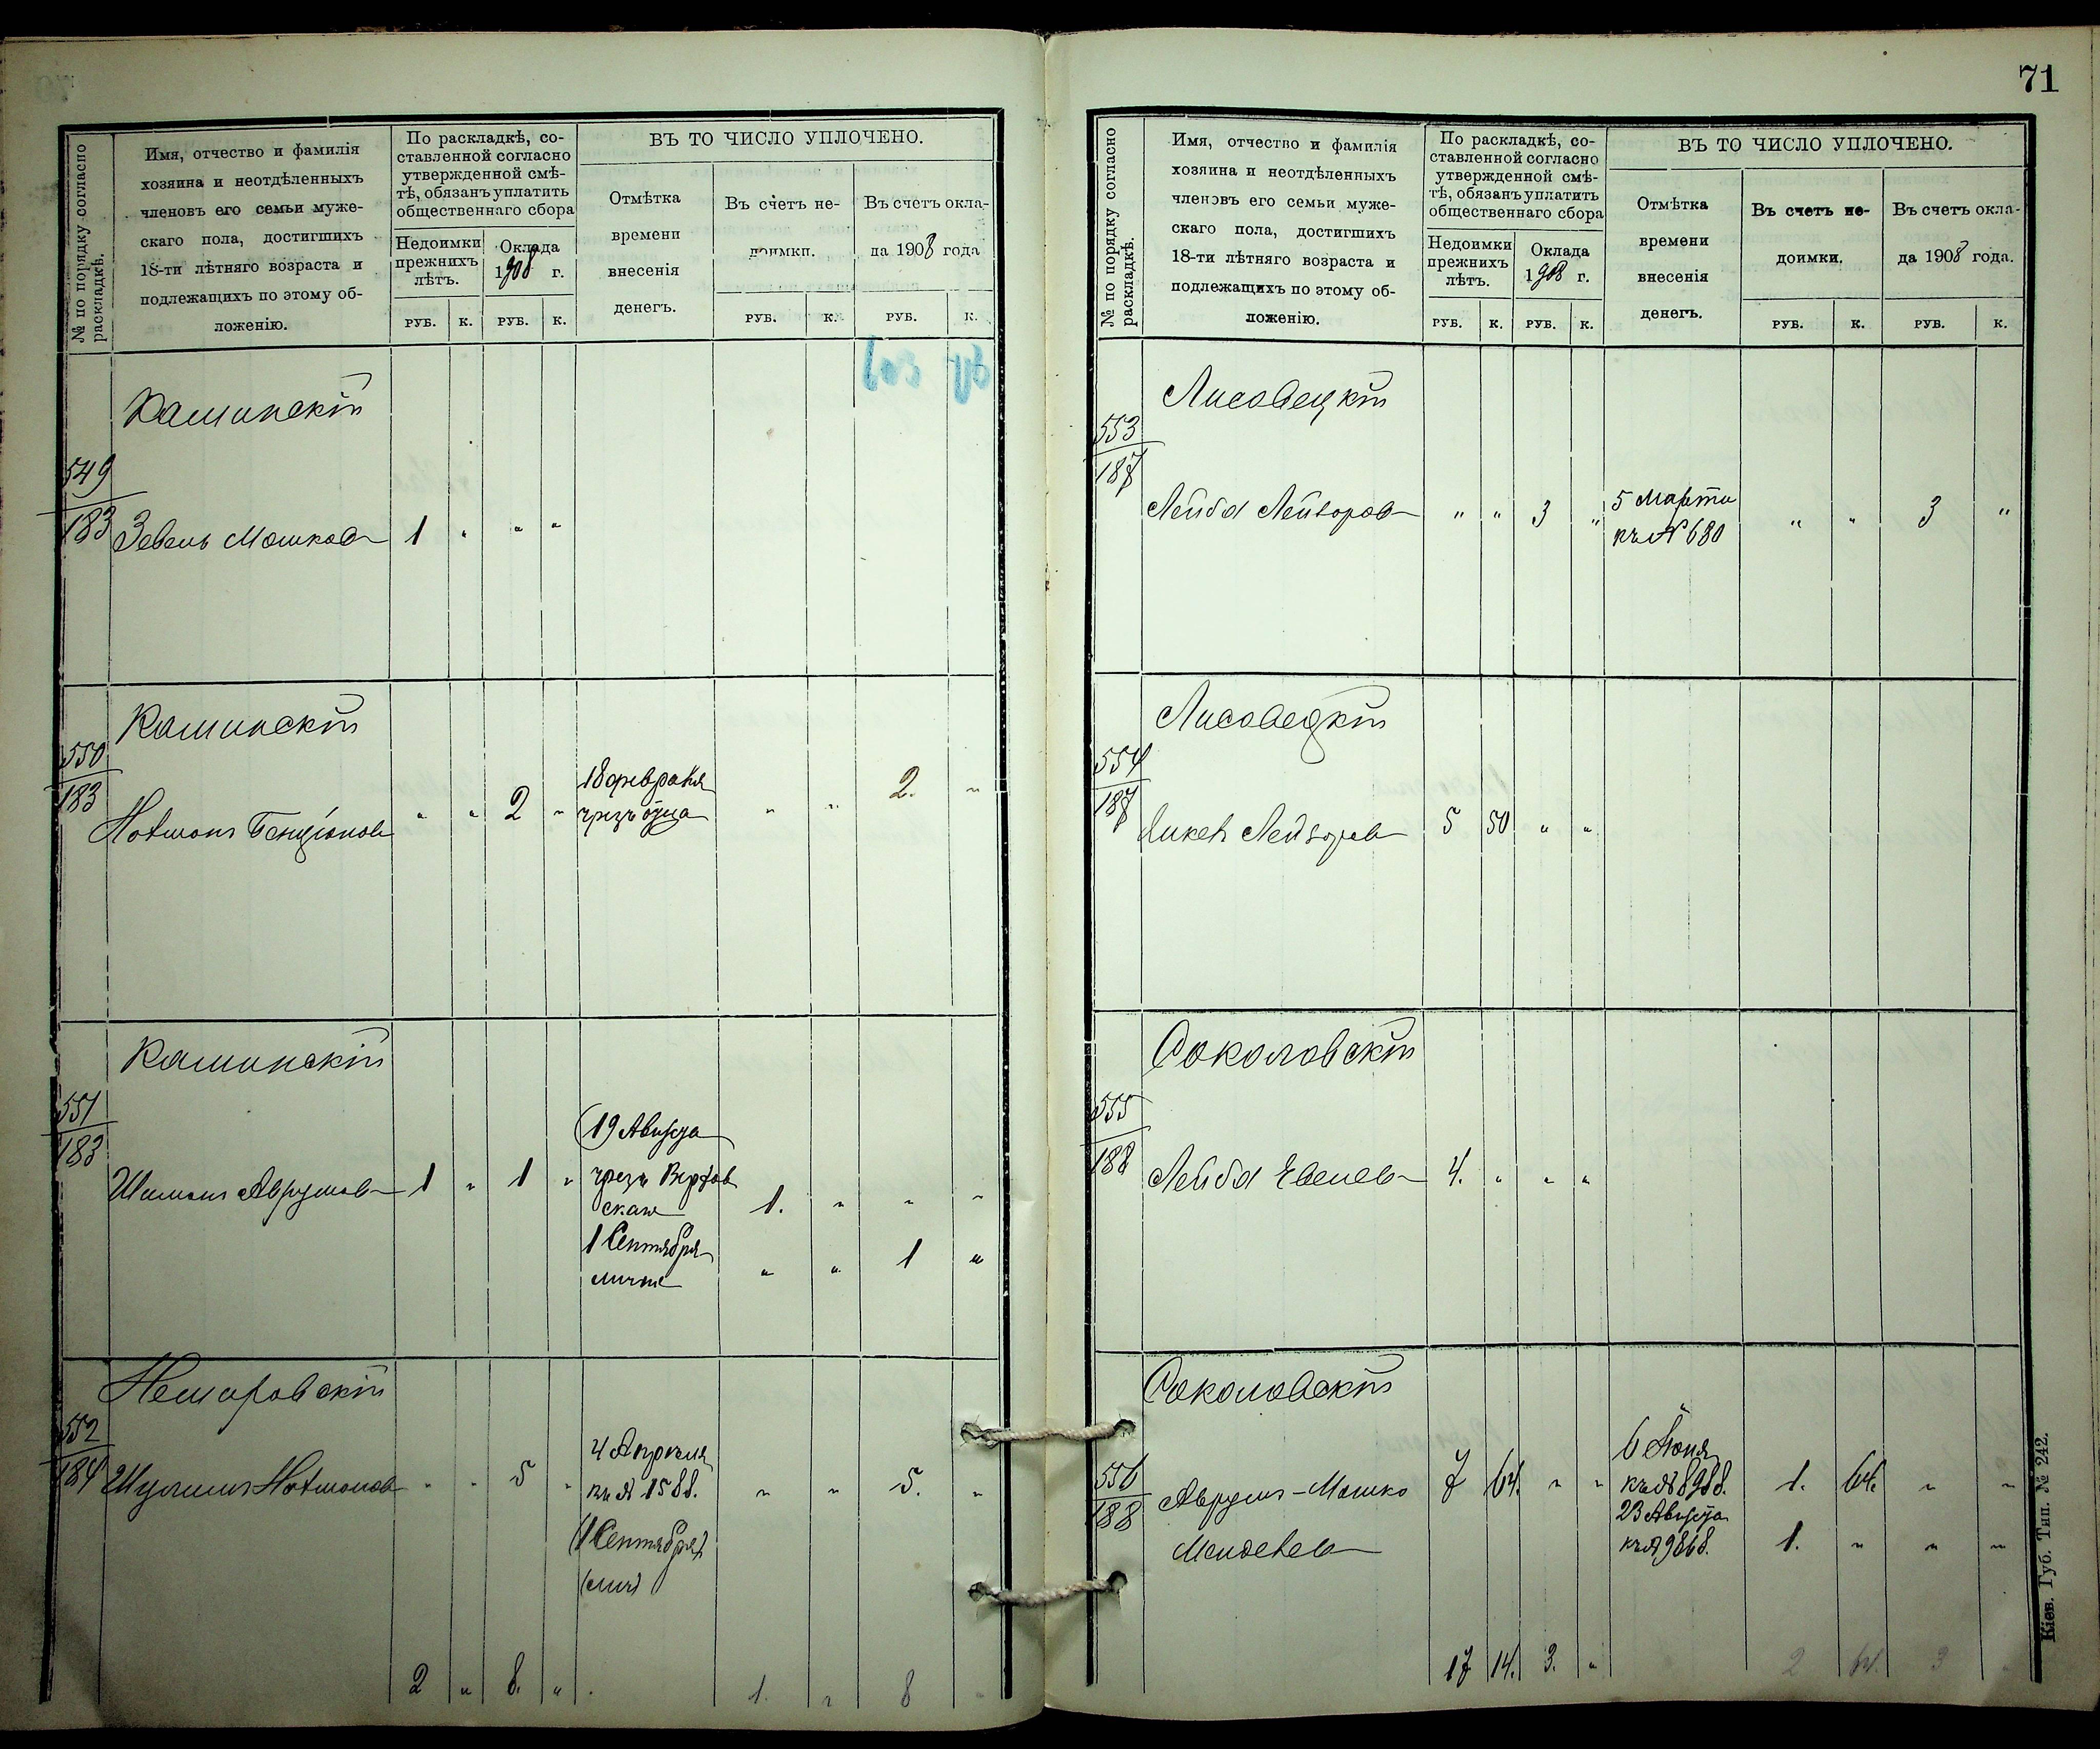 № по порядку согласно раскладкѣ.
Имя, отчество и фамилія
хозяина и неотдѣленныхъ
членовъ его семьи муже-
скаго пола, достигшихъ
18-ти лѣтняго возраста и
подлежащихъ по этому об-
ложенію.
По раскладкѣ, со-
ставленной согласно
утвержденной смѣ-
тѣ, обязанъ уплатить
общественнаго сбора
Недоимки
прежнихъ
лѣтъ.
Оклада
1908 г.
РУБ. К. РУБ. К.
ВЪ ТО ЧИСЛО УПЛОЧЕНО.
Отмѣтка
времени
внесенія
денегъ.
Въ счетъ не-
доимки.
Въ счетъ окла-
да 1908 года
РУБ. К. РУБ. К.
Каминскій
549
183
Зевель Мошковъ 1 " " "
Каминскій
550
183
Нотманъ Бенціоновъ " " 2 " 18 февраля " " 2. "
чрезъ отца
Каминскій
551
183
Шимонъ Аврумовъ 1 " 1 "
19 Августа
чрезъ
1. " " "
1 Сентября
лично " " 1 "
Немировскій
552
184
Шулимъ Нотмановъ " " 5 "
4 Апрѣля
къ № 1588. " " 5. "
(1 Сентября)
2 " 8. " 1. " 8 "
71
№ по порядку согласно раскладкѣ.
Имя, отчество и фамилія
хозяина и неотдѣленныхъ
членовъ его семьи муже-
скаго пола, достигшихъ
18-ти лѣтняго возраста и
подлежащихъ по этому об-
ложенію.
По раскладкѣ, со-
ставленной согласно
утвержденной смѣ-
тѣ, обязанъ уплатить
общественнаго сбора
Недоимки
прежнихъ
лѣтъ.
Оклада
1908 г.
РУБ. К. РУБ. К.
ВЪ ТО ЧИСЛО УПЛОЧЕНО.
Отмѣтка
времени
внесенія
денегъ.
Въ счетъ не-
доимки.
Въ счетъ окла-
да 1908 года.
РУБ. К. РУБ. К.
Лисовецкій
553
187
Лейба Лейзоровъ " " 3 " 5 Марта " " 3 "
къ № 680
Лисовецкій
554
187
Лейзоровъ 5 50 " "
Соколовскій
555
188
Лейба 4. " " "
Соколовскій
556
188
Аврумъ-Мошко 7 64. " "
Менделевъ
6 Іюня
къ № 8988. 1. 64. " "
23 Августа
къ № 9868. 1. " " "
17 14. 3. " 2 64. 3 "
Кіев. Губ. Тип. № 242.